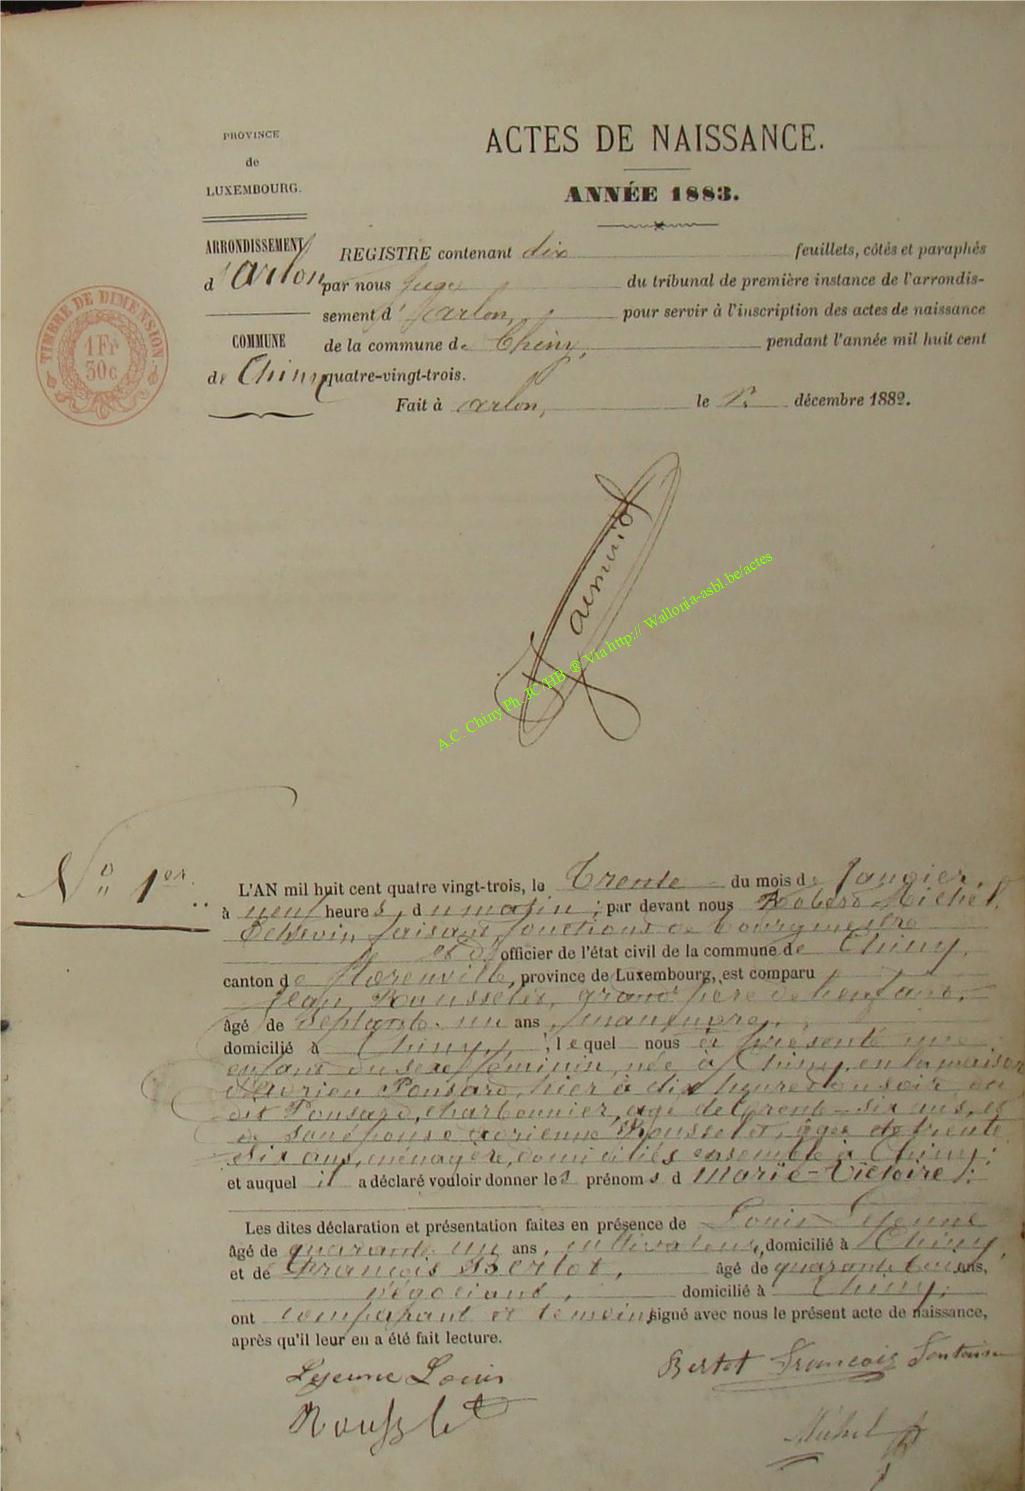 PROVINCE
de
LUXEMBOURG.
ARRONDISSEMENT
d'Arlon
COMMUNE
de Chiny
TIMBRE DE DIMENSION.
1 Fr
30c
ACTES DE NAISSANCE.
ANNÉE 1883.
REGISTRE contenant dix feuillets, côtés et paraphés
par nous Juge du tribunal de première instance de l'arrondis-
sement d'Arlon, pour servir à l'inscription des actes de naissance
de la commune de Chiny, pendant l'année mil huit cent
quatre-vingt-trois.
Fait à Arlon, le décembre 1882.
A.C. Chiny Ph. JC HB ® Via http:// Wallonia-asbl.be/actes
No 1er
L'AN mil huit cent quatre vingt-trois, le Trente du mois de Janvier,
à neuf heures, du matin, par devant nous Robert Michel,
Echevin faisant fonctions de bourgmestre
et d'officier de l'état civil de la commune de Chiny,
canton de Florenville, province de Luxembourg, est comparu
Jean Rousselet, grand père de l'enfant,
âgé de Septante-un ans, manœuvre,
domicilié à Chiny, lequel nous à présenté une
enfant du sexe féminin, née à Chiny, en la maison
d'Adrien Ponsard, hier à dix heures du soir, du
dit Ponsard, charbonnier, âgé de trente-six ans, et
de son épouse Adrienne Rousselet, âgée de trente
six ans, ménagère, domiciliés ensemble à Chiny;
et auquel il a déclaré vouloir donner les prénoms d Marie-Victoire;
Les dites déclaration et présentation faites en présence de Louis Lejeune
âgé de quarante un ans, cultivateur, domicilié à Chiny,
et de François Bertot, âgé de quarante ans,
négociant, domicilié à Chiny;
ont comparant et témoins signé avec nous le présent acte de naissance,
après qu'il leur en a été fait lecture.
Lejeune Louis
Bertot François Fontaine
Rousselet
Michel